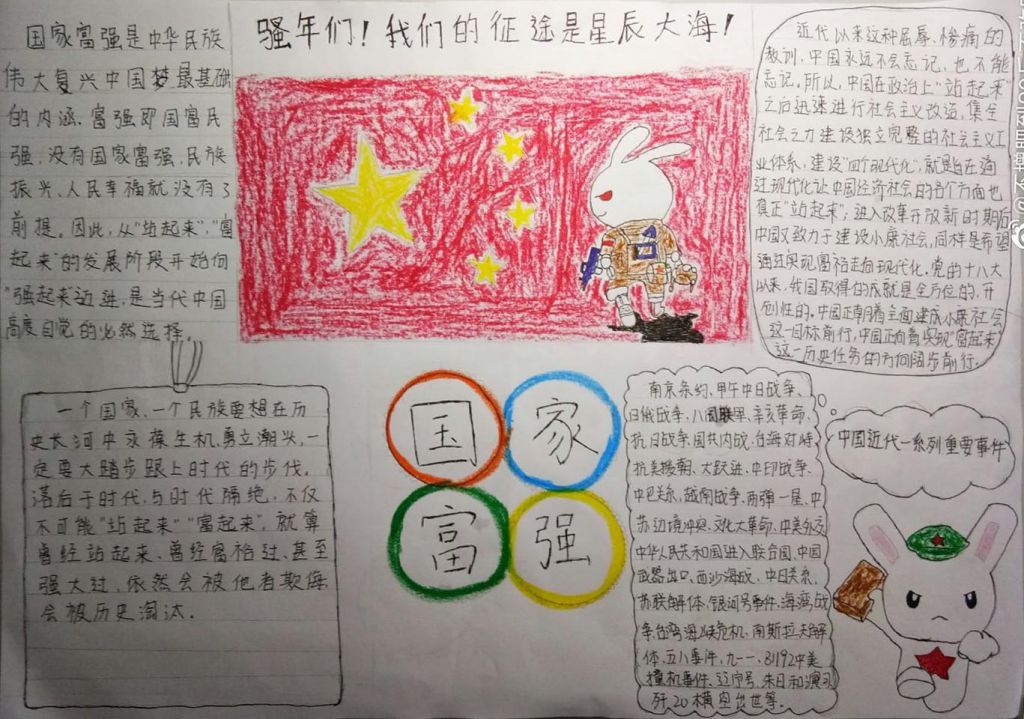 骚年们！我们的征途是星辰大海！
国家富强是中华民族
伟大复兴中国梦最基础
的内涵，富强即国富民
强，没有国家富强、民族
振兴、人民幸福就没有了
前提。因此，从“站起来”、“富
起来”的发展阶段开始向
“强起来”迈进，是当代中国
高度自觉的必然选择。
近代以来这种屈辱、惨痛的
教训，中国永远不会忘记，也不能
忘记。所以，中国在政治上“站起来”
之后迅速进行社会主义改造，集全
社会之力建设独立完整的社会主义工
业体系，建设“四个现代化”，就是旨在通
过现代化让中国经济社会的各个方面也
真正“站起来”；进入改革开放新时期后
中国又致力于建设小康社会，同样是希望
通过实现富裕走向现代化。党的十八大
以来，我国取得的成就是全方位的，开
创性的。中国正朝着全面建成小康社会
这一目标前行，中国正向着实现“富起来”
这一历史任务的方向阔步前行。
一个国家、一个民族要想在历
史长河中永葆生机、勇立潮头，一
定要大踏步跟上时代的步伐。
落后于时代，与时代隔绝，不仅
不可能“站起来”“富起来”，就算
曾经站起来、曾经富裕过、甚至
强大过，依然会被他者欺侮
会被历史淘汰．
国家
富强
南京条约、甲午中日战争、
日俄战争、八国联军、辛亥革命、
抗日战争、国共内战、台海对峙
抗美援朝、大跃进、中印战争、
中巴关系、越南战争、两弹一星、中
苏边境冲突、文化大革命、中美外交
中华人民共和国进入联合国、中国
武器出口、西沙海战、中日关系、
苏联解体、银河号事件、海湾战
争、台湾海峡危机、南斯拉夫解
体、五八事件、九一一、81192中美
撞机事件、辽宁号、朱日和演习
歼20横空出世等。
中国近代一系列重要事件